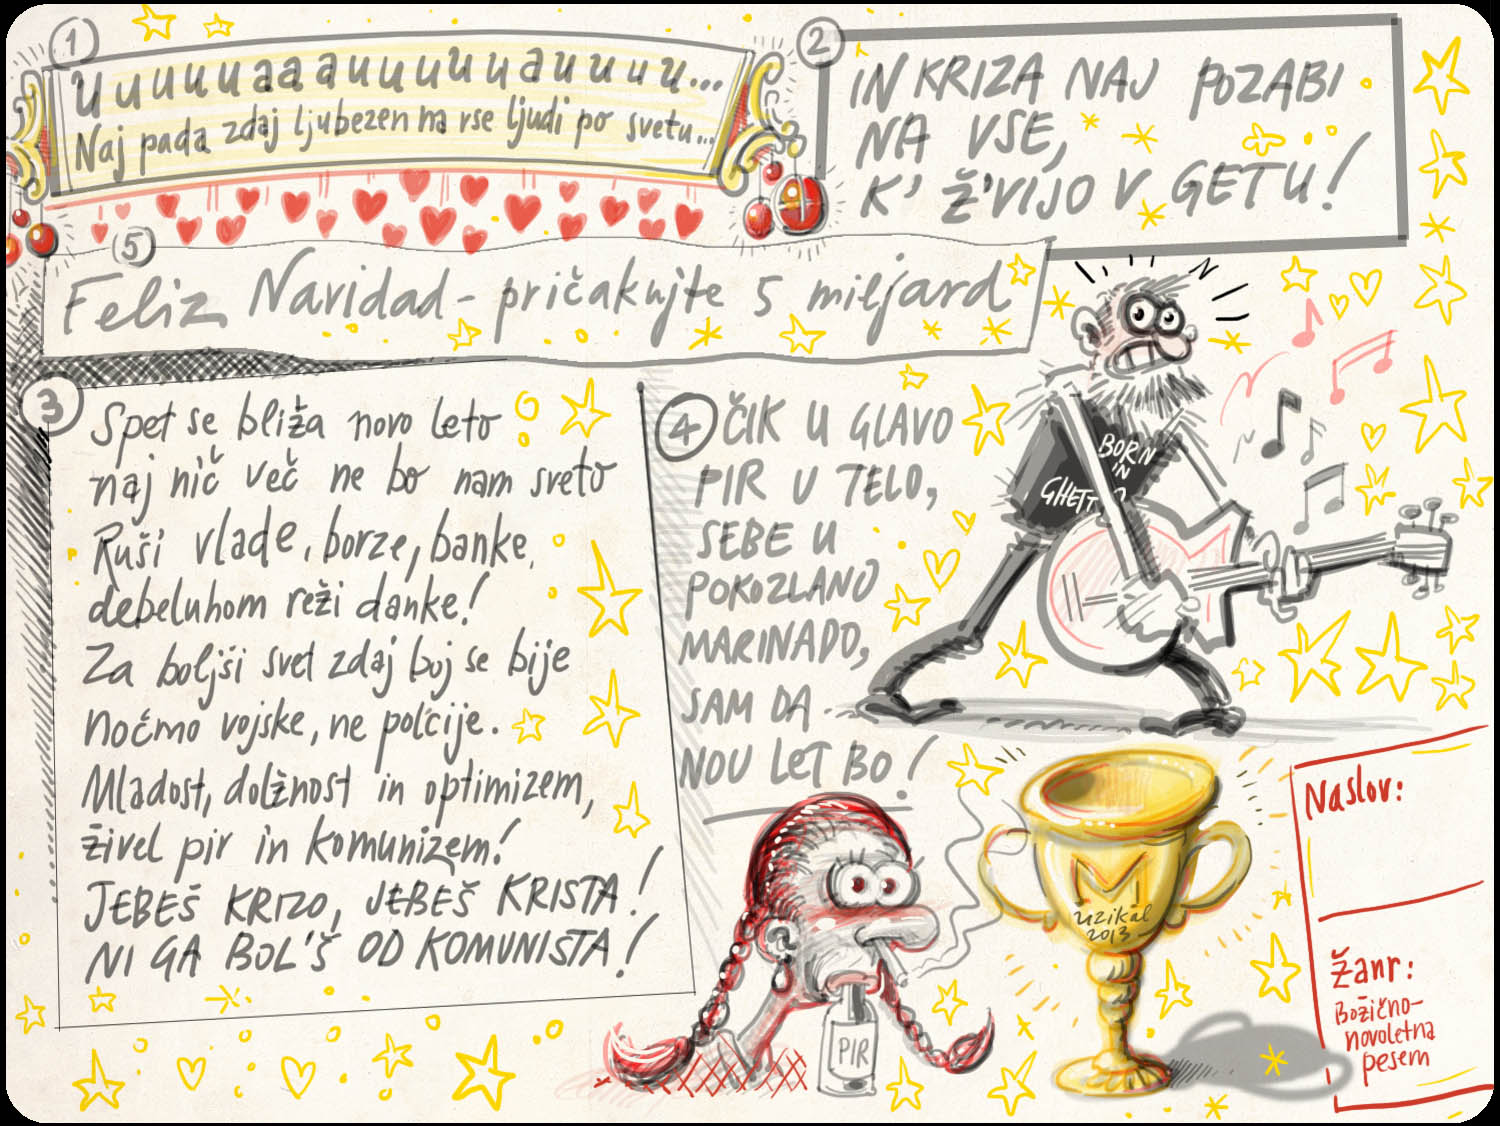 1
Uuuuuaaauuuuuauuuu...
Naj pada zdaj ljubezen na vse ljudi po svetu...
2
IN KRIZA NAJ POZABI
NA VSE,
K' Ž'VIJO V GETU!
5
Feliz Navidad - pričakujte 5 miljard
3
Spet se bliža novo leto
naj nič več ne bo nam sveto
Ruši vlade, borze, banke,
debeluhom reži danke!
Za boljši svet zdaj boj se bije
nočmo vojske, ne pol'cije.
Mladost, dolžnost in optimizem,
živel pir in komunizem!
JEBEŠ KRIZO, JEBEŠ KRISTA!
NI GA BOL'Š OD KOMUNISTA!
4
ČIK U GLAVO
PIR U TELO,
SEBE U
POKOZLANO
MARINADO,
SAM DA
NOU LET BO!
BORN
IN
GHETTO
PIR
M
uzikal
2013
Naslov:
Žanr:
Božično-
novoletna
pesem